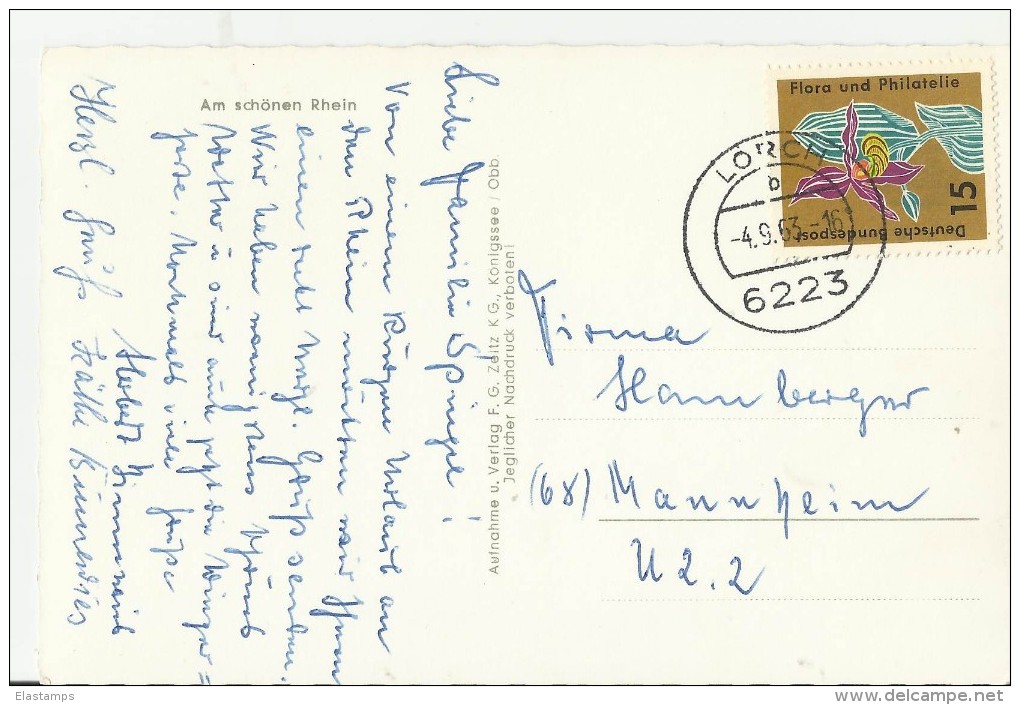 Am schönen Rhein
Liebe Familie Spingel!
Von einem kurzen Urlaub an
dem Rhein möchten wir Ihnen
einen recht herzl. Gruß senden.
Wir haben wenigstens schönes
Wetter u. sind auch jetzt die Winzer=
Nochmals viele Grüße
Herbert
Herzl. Grüße Käthe
Aufnahme u. Verlag F. G. Zeitz K G., Königssee / Obb.
Jeglicher Nachdruck verboten!
Flora und Philatelie
15
Deutsche Bundespost
LORCH
b
-4.9.63.-16
6223
Firma
Hamberger
(68) Mannheim
U 2.2
Elastamps
www.delcampe.net